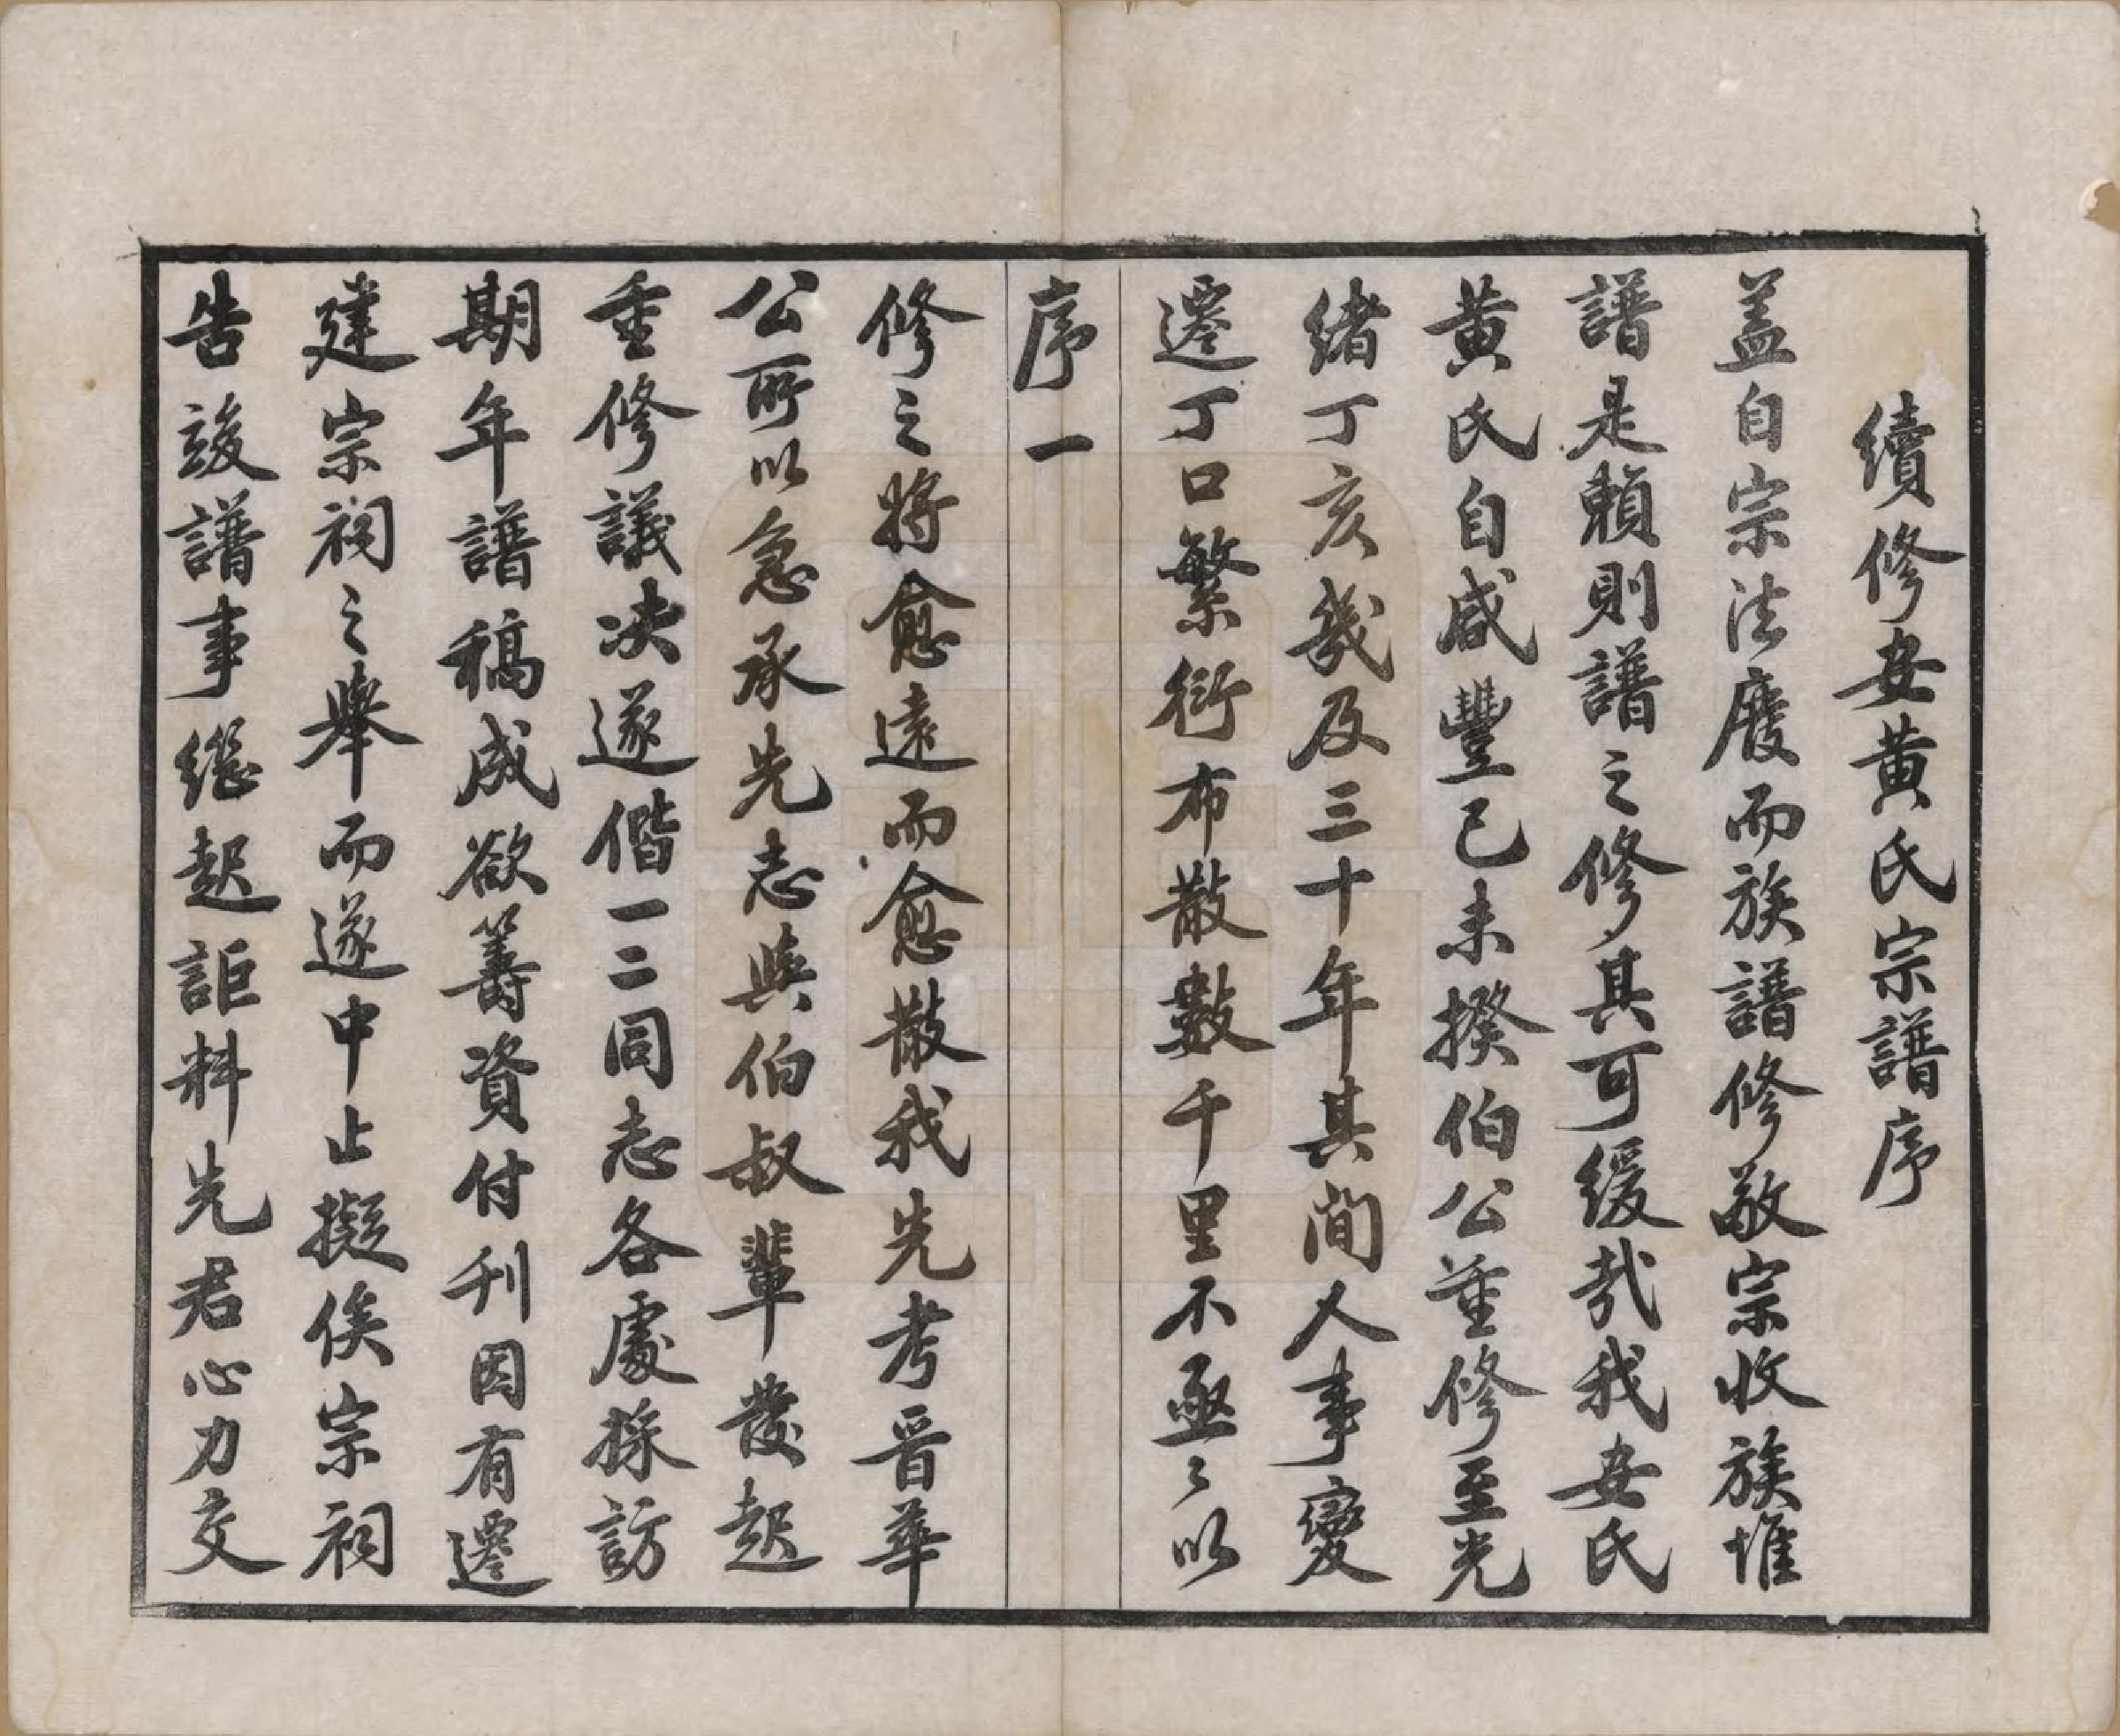 續修安黄氏宗譜序
盖自宗法廢而族譜修敬宗收族惟
譜是賴則譜之修其可緩哉我安氏
黄氏自咸豐己未揆伯公重修至光
緒丁亥幾及三十年其間人事變
遷丁口繁衍布散數千里不亟亟以
序一
修之將愈遠而愈散我先考晋華
公所以急承先志與伯叔輩發起
重修議决遂偕一二同志各處採訪
期年譜稿成欲籌資付刊因有遷
建宗祠之舉而遂中止擬俟宗祠
告竣譜事继起詎料先君心力交